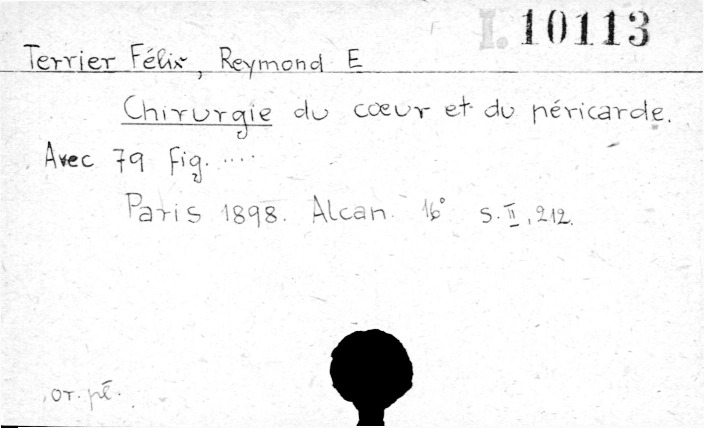 I. 10113
Terrier Félix, Reymond E
Chirurgie du cœur et du péricarde.
Avec 79 Fig. ....
Paris 1898. Alcan. 16° s. II, 212.
or. pł.